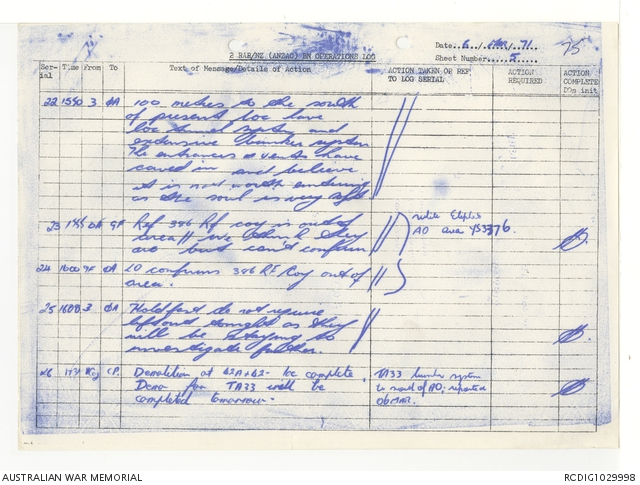 Date 6 / MAR / 71
75
2 RAR/NZ (ANZAC) BN OPERATIONS LOG
Sheet Number 5
Ser-ial Time From To Text of Message/Details of Action ACTION TAKEN OR REF TO LOG SERIAL ACTION REQUIRED ACTION COMPLETE DOn init
22 1550 3 0A 100 metres to the south
of present loc have
loc tunnel system and
extensive bunker system
The entrances & vents have
caved in and believe
it is not worth entering
as the soil is very soft
23 0A 9F Ref 386 RF coy is out of
area // we think they
are but can't confirm
White
AO area YS3376.
24 1600 9F 0A LO confirms 386 RF Coy out of
area.
25 1608 3 0A Holdfast do not require
liftout tonight as they
will be staying to
investigate further.
26 CP. Demolition at 62A+62- complete.
Demo for TA33 will be
completed tomorrow.
TA33 bunker system
to north of AO; reported
06MAR.
AUSTRALIAN WAR MEMORIAL
RCDIG1029998